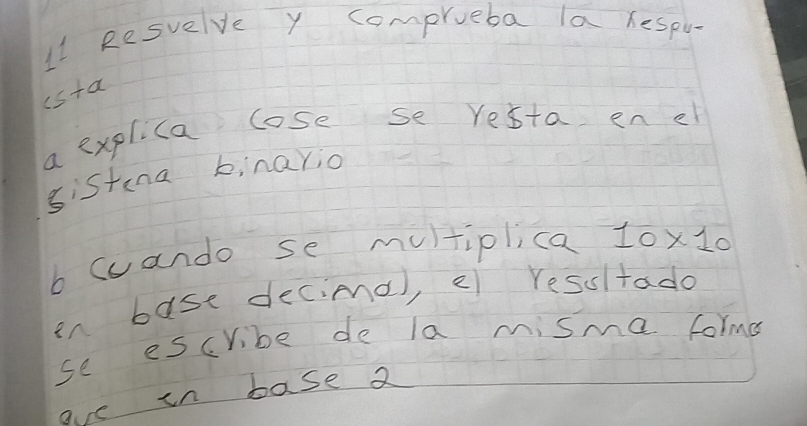 11 Resuelve y comprueba la respu-
esta
a explica cose se resta en el
sistena binario
b cuando se multiplica 10x10
en base decimal, el resultado
se escribe de la misma forma
que en base 2